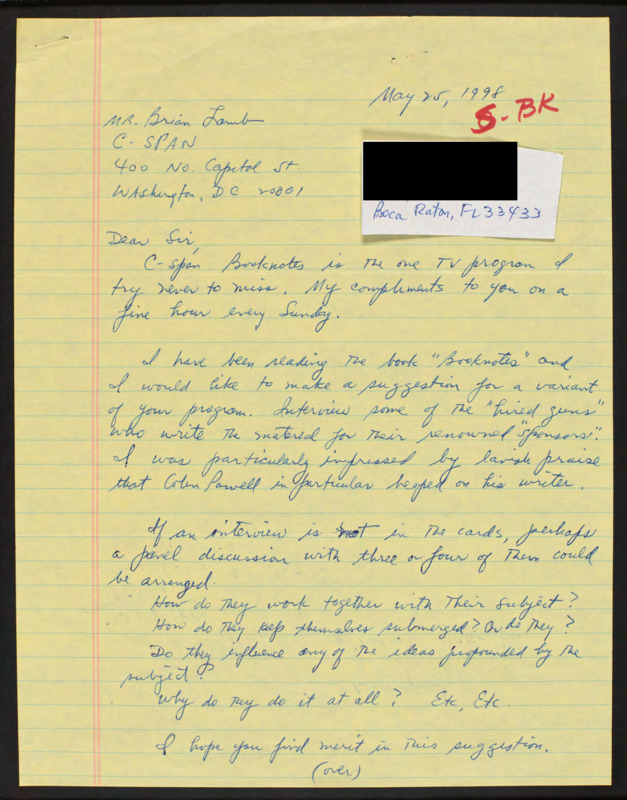 May 25, 1998
S-BK
Mr. Brian Lamb
C-SPAN
400 No. Capitol St.
Washington, DC 20001
Boca Raton, FL 33433
Dear Sir,
C-Span Booknotes is the one TV program I
try never to miss. My compliments to you on a
fine hour every Sunday.
I have been reading the book "Booknotes" and
I would like to make a suggestion for a variant
of your program. Interview some of the "hired guns"
who write the material for their renowned "sponsors".
I was particularly impressed by lavish praise
that Colin Powell in particular heaped on his writer.
If an interview is not in the cards, perhaps
a panel discussion with three or four of them could
be arranged.
How do they work together with their subject?
How do they keep themselves submerged? Or do they?
Do they influence any of the ideas propounded by the
subject?
Why do they do it at all? Etc, Etc.
I hope you find merit in this suggestion.
(over)